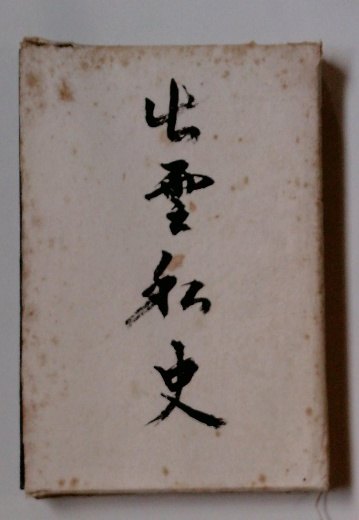 出雲私史